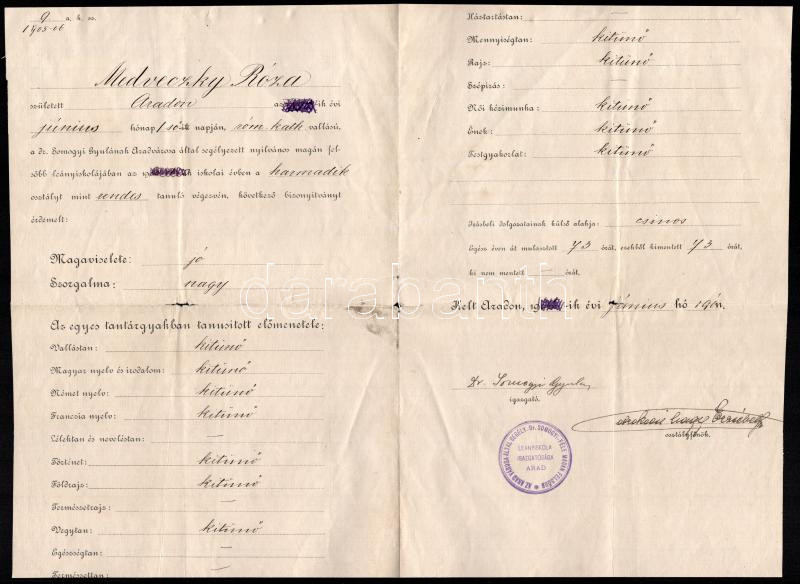 9 a. k. sz.
1905-06
Medveczky Róza
született Aradon az ik évi
június hónap napján, róm. kath. vallású,
a dr. Somogyi Gyulának Aradvárosa által segélyezett nyilvános magán fel-
sőbb leányiskolájában az iskolai évben a harmadik
osztályt mint rendes tanuló végezvén, következő bizonyitványt
érdemelt:
Magaviselete: jó
Szorgalma: nagy
Az egyes tantárgyakban tanusitott előmenetele:
Vallástan: kitünő
Magyar nyelv és irodalom: kitünő
Német nyelv: kitünő
Francia nyelv: kitünő
Lélektan és neveléstan: —
Történet: kitünő
Földrajz: kitünő
Természetrajz: —
Vegytan: kitünő
Egészségtan: —
Természettan:
Háztartástan: —
Mennyiségtan: kitünő
Rajz: kitünő
Szépirás: —
Női kézimunka: kitünő
Ének: kitünő
Testgyakorlat: kitünő
Irásbeli dolgozatainak külső alakja: csinos
Egész éven át mulasztott 73 órát, ezekből kimentett 73 órát,
ki nem mentett — órát.
Kelt Aradon, 19 -ik évi június hó
Dr. Somogyi Gyula
igazgató.
Erzsébet
osztályfőnök.
AZ ARAD VÁROSA ÁLTAL SEGÉLY. Dr. SOMOGYI-FÉLE MAGÁN FELSŐBB
LEÁNYISKOLA
IGAZGATÓSÁGA
ARAD
darabanth